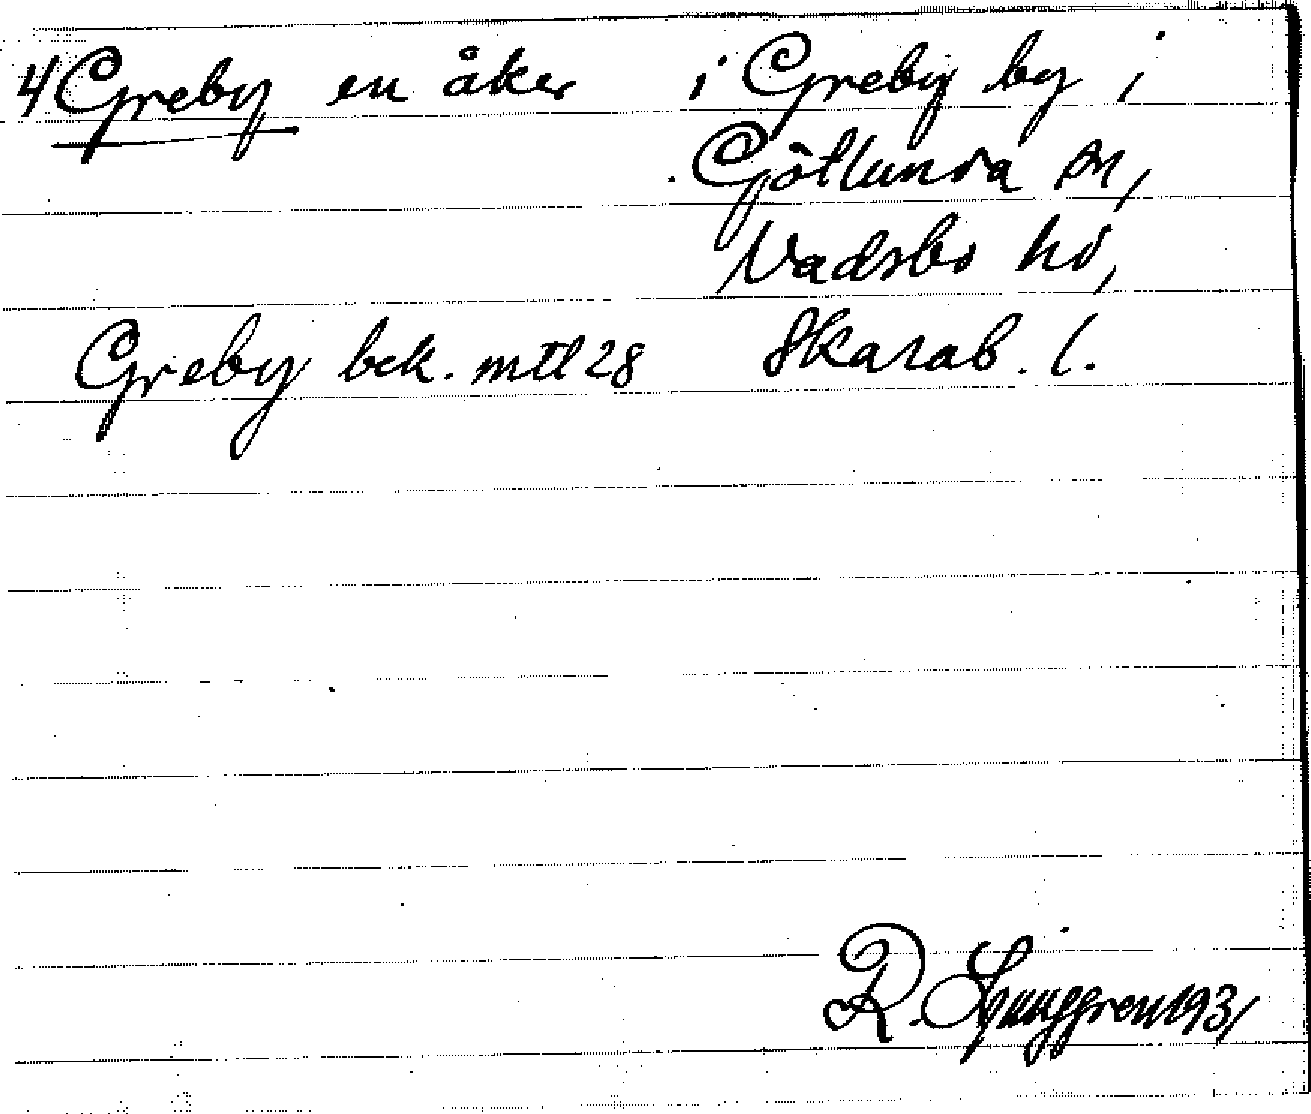 4 Greby en åker i Greby by i
Götlunda sn,
Vadsbo hd,
Greby bek. mtl 28 Skarab. l.
R. Ljunggren 1931